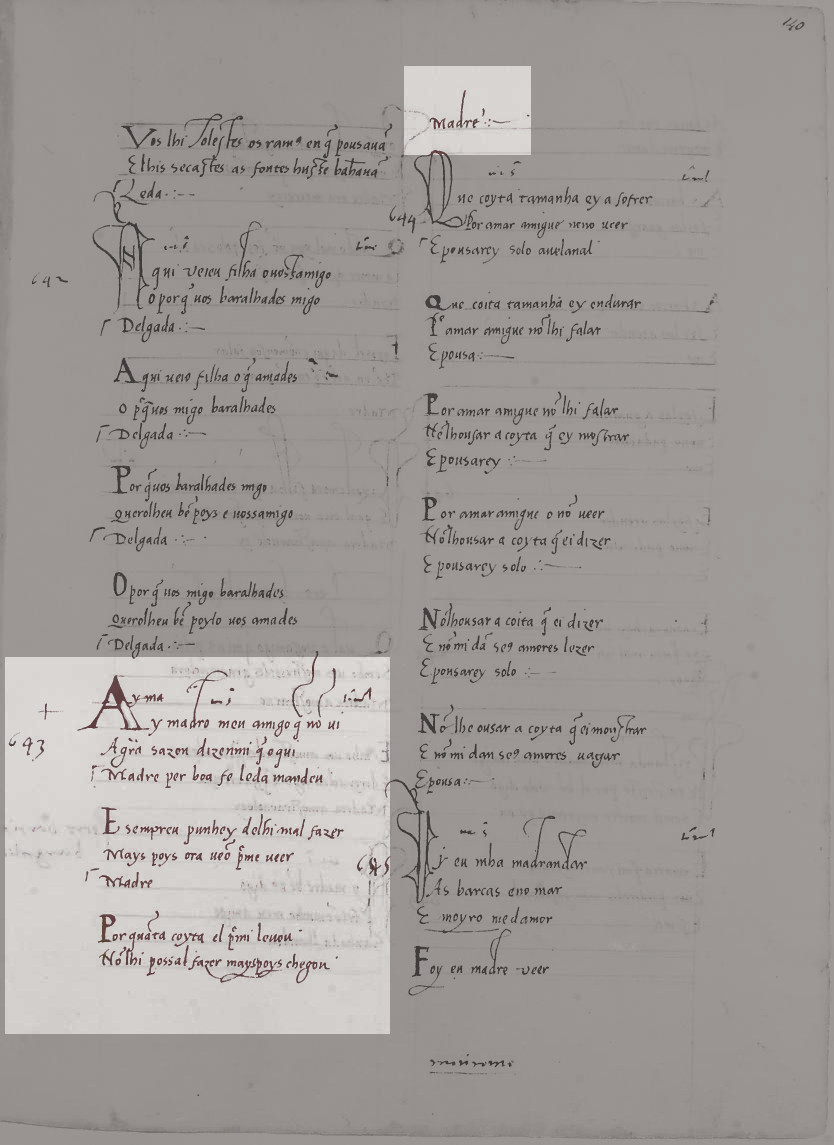 140
Vos lhi tolestes os ramꝯ en q̄ pousauā
E lhis secastes as fontes hu sse bañauā
Leda
642
A qui ueieu filha o uossamigo
O por q̄ uos baralhades migo
Delgada
Aqui ueio filha o q̄ amades
O p̃ q̄ uos migo baralhades
Delgada
Por q̄ uos baralhades migo
Querolheu bē poys e uossamigo
Delgada
O por q̄ uos migo baralhades
Querolheu bē poylo uos amades
Delgada
643
Ay ma
Ay madro meu amigo q̄ nō ui
A grā sazon dizenmi q̄ e qui
Madre per boa fe leda mandeu
E sempreu punhey delhi mal fazer
Mays poys ora ueō p̄me ueer
Madre
Por quāta coyta el p̄mi leuou
Nō lhi possal fazer mays poys chegou
Madre
644
Que coyta tamanha ey a sofrer
Por amar amigue nono ueer
E pousarey solo auelanal
Que coita tamanha ey endurar
Pᵒ amar amigue nō lhi falar
E pousa
Por amar amigue nō lhi falar
Nē lhousar a coyta q̄ ey mostrar
E pousarey
Por amar amigue o nō ueer
Nō lhousar a coyta q̄ ei dizer
E pousarey solo
Nō lhousar a coita q̄ ei dizer
E nō mi dā seꝯ amores lezer
E pousarey solo
Nō lhe ousar a coyta q̄ ei monstrar
E nō mi dan seꝯ amores uagar
E pousa
645
Fuy eu mha madrandar
As barcas eno mar
E moyro me damor
Foy en madre veer